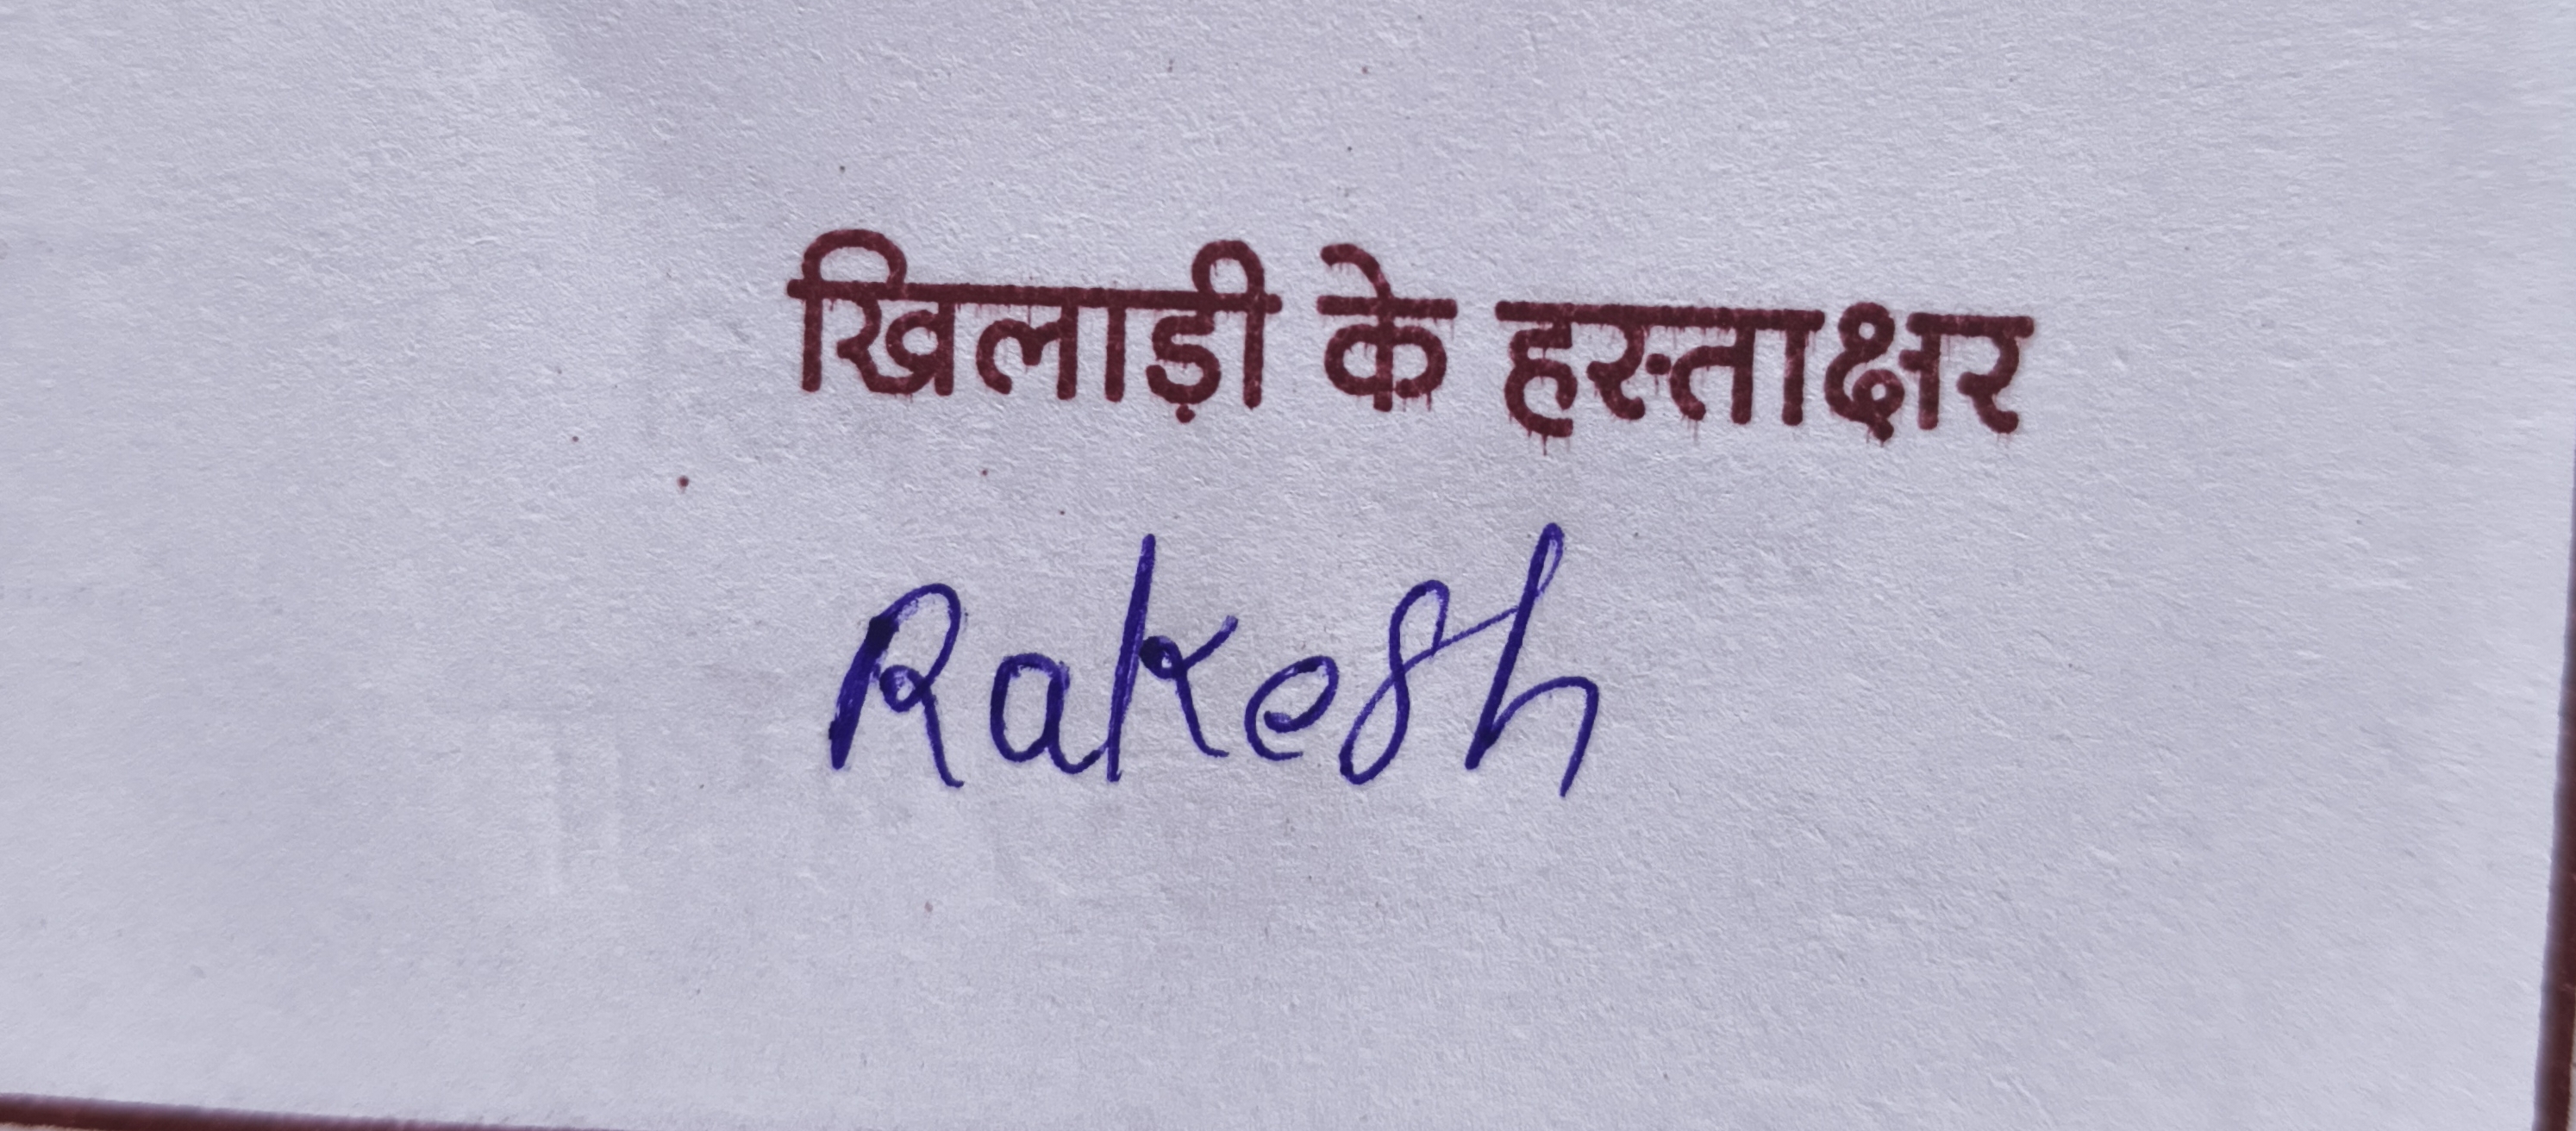 खिलाड़ी के हस्ताक्षर
Rakesh